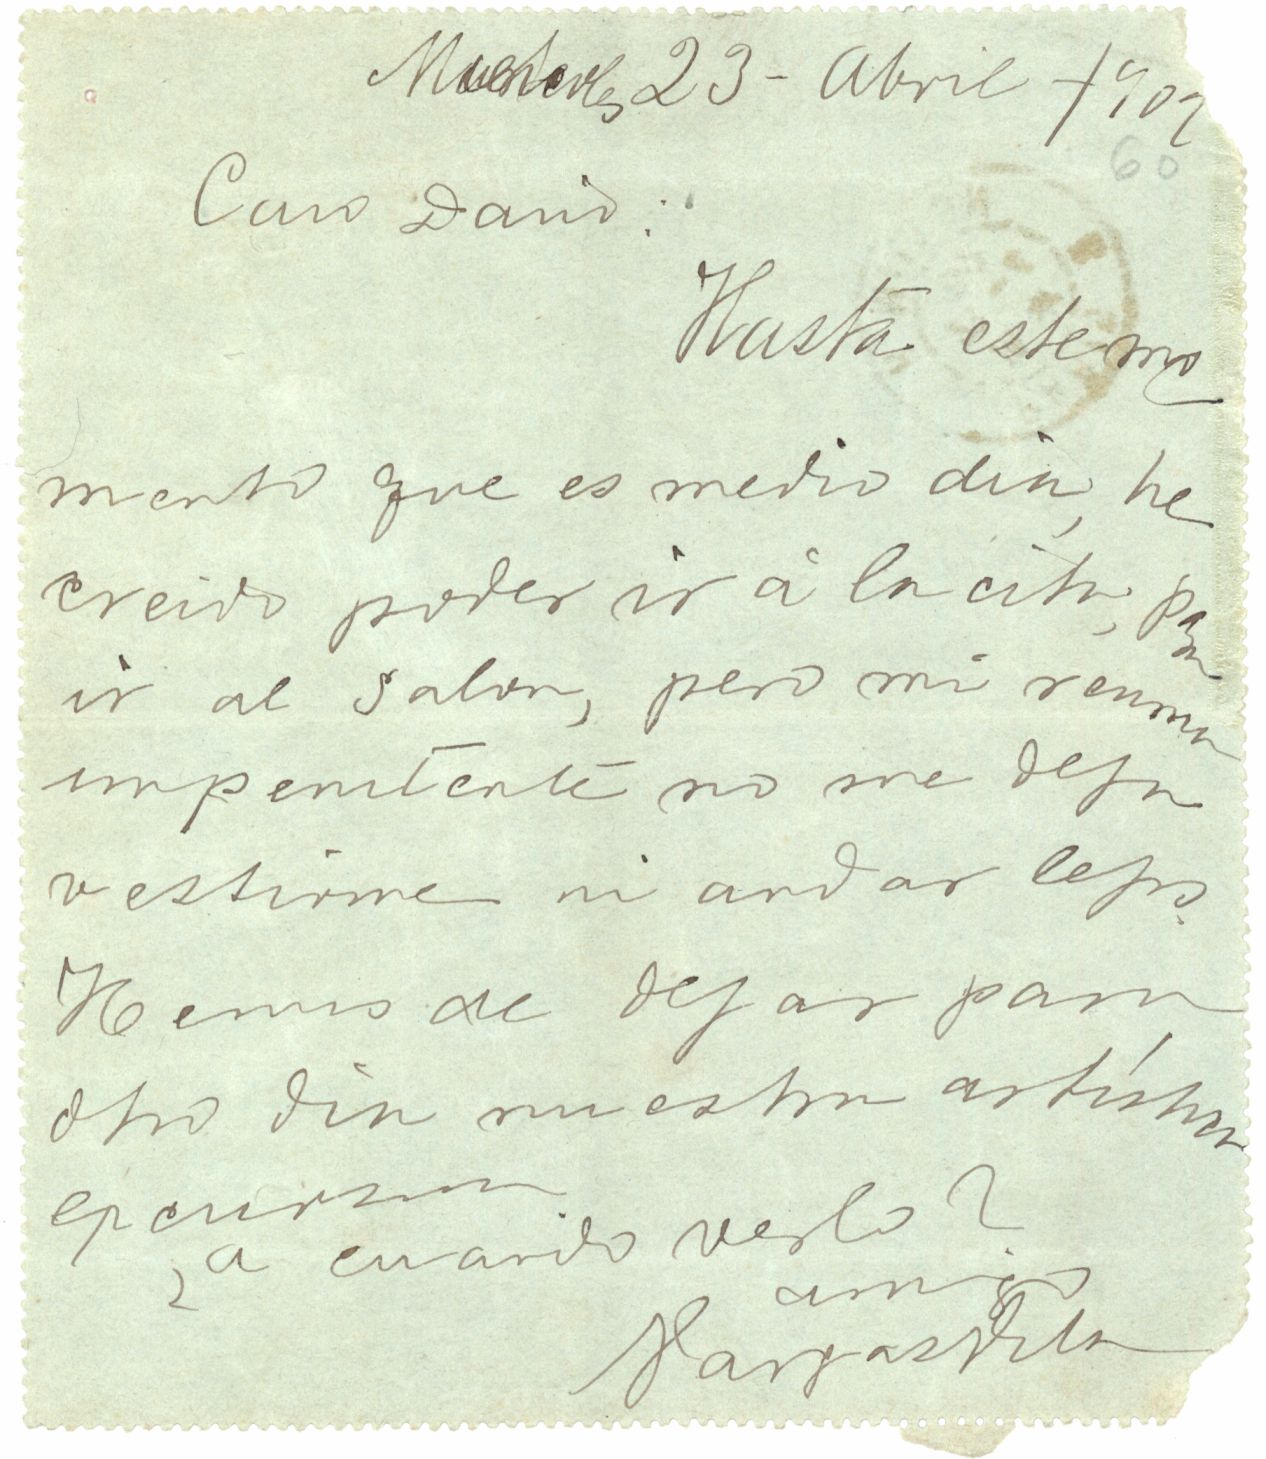 Miercoles 23 - Abril 1902
60
Caro Dario:
Hasta este mo
mento que es medio dia, he
creido poder ir á la cita, para
ir al salon, pero mi reuma
impenitente no me deja
vestirme ni andar lejos.
Hemos de dejar para
otro dia nuestra artística
epcursion
¿a cuando verlo?
amigo
Vargas Vila